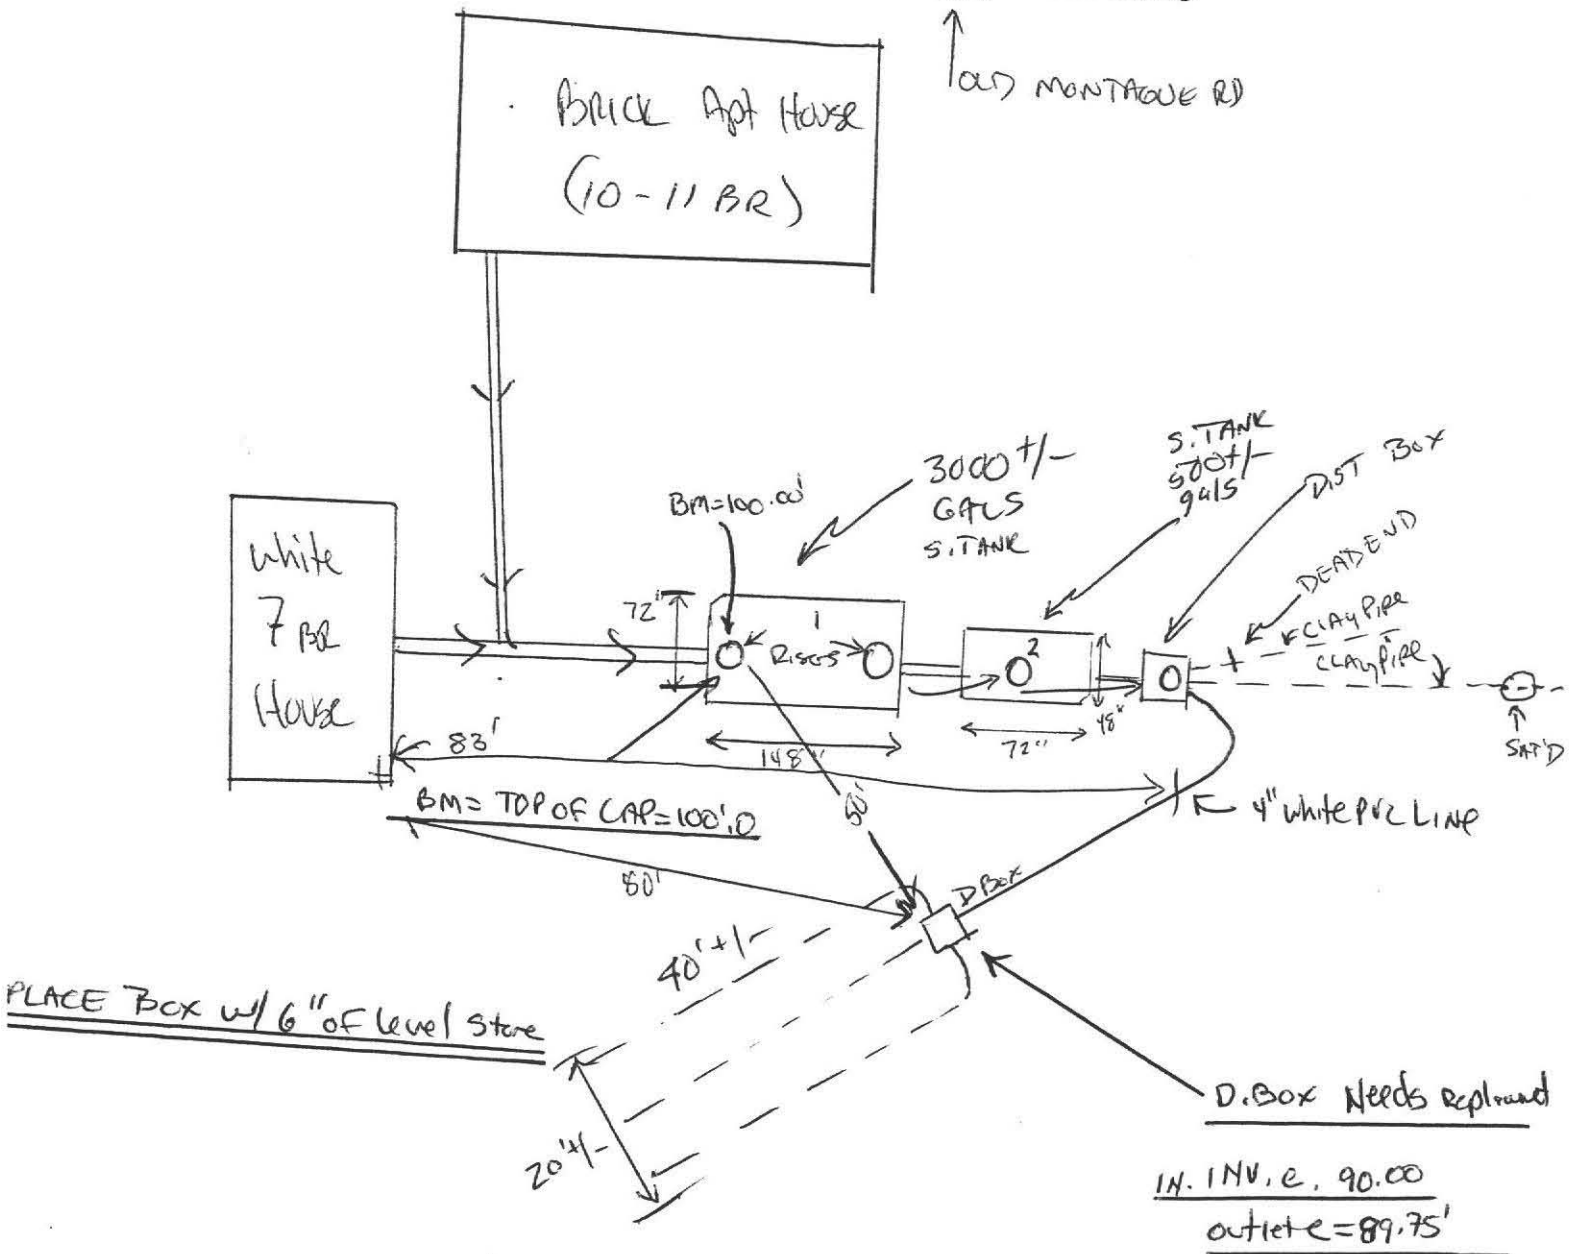 OLD MONTAGUE RD
BRICK Apt House
(10-11 BR)
white
7 BR
House
BM=100.00'
3000 +/-
GALS
S.TANK
S.TANK
500+/-
gals
DIST BOX
DEAD END
CLAY PIPE
CLAY PIPE
SAT'D
72"
1
RISERS
2
48"
72"
148"
83'
4" white PVC LINE
BM = TOP OF CAP = 100'.0
50'
80'
D BOX
40' +/-
PLACE BOX w/ 6" OF level Stone
20' +/-
D.BOX Needs
IN. INV. e. 90.00
outlet e = 89.75'